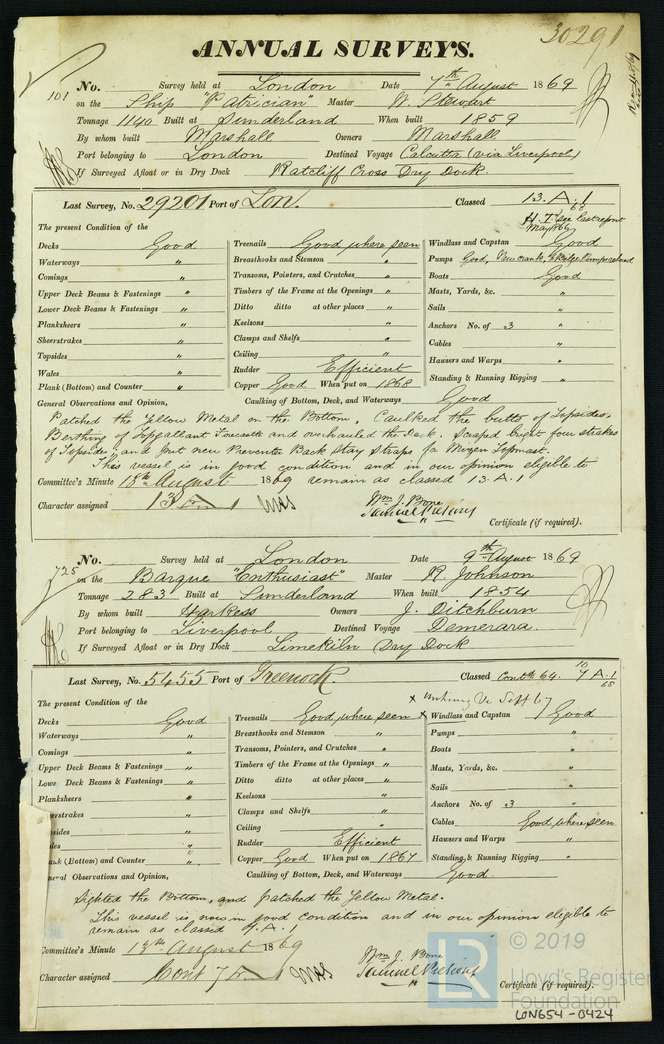 30291
ANNUAL SURVEYS.
101
No. Survey held at London Date 7th August 1869
on the Ship "Patrician" Master W. Stewart
Tonnage 1140 Built at Sunderland When built 1859
By whom built Marshall Owners Marshall
Port belonging to London Destined Voyage Calcutta (via Liverpool)
If Surveyed Afloat or in Dry Dock Ratcliff Cross Dry Dock
Last Survey, No. 29201 Port of Lon. Classed 13. A. 1
68
H. T. see last report
May 66
The present Condition of the
Decks Good
Waterways "
Comings "
Upper Deck Beams & Fastenings "
Lower Deck Beams & Fastenings "
Planksheers "
Sheerstrakes "
Topsides "
Wales "
Plank (Bottom) and Counter "
Treenails Good where seen
Breasthooks and Stemson "
Transoms, Pointers, and Crutches "
Timbers of the Frame at the Openings "
Ditto ditto at other places "
Keelsons "
Clamps and Shelfs "
Ceiling "
Rudder Efficient
Copper Good When put on 1868
Windlass and Capstan Good
Pumps Good, New cranks, & Bilge Pump
Boats Good
Masts, Yards, &c. "
Sails "
Anchors No. of 3 "
Cables "
Hausers and Warps "
Standing & Running Rigging "
General Observations and Opinion, Caulking of Bottom, Deck, and Waterways Good
Patched the Yellow Metal on the Bottom, Caulked the butts of Topsides,
Berthing of Topgallant Forecastle and overhauled the deck. Scraped bright four strakes
of Topsides, and put new Preventer Back Stay Straps for Mizen Topmast.
This vessel is in good condition and in our opinion eligible to
remain as classed 13. A. 1
Committee's Minute 18th August 1869
Character assigned 13 A 1
Wm. J. Bone
Certificate (if required).
725
No. Survey held at London Date 9th August 1869
on the Barque "Enthusiast" Master R. Johnson
Tonnage 283 Built at Sunderland When built 1854
By whom built Harkess Owners J. Ditchburn
Port belonging to Liverpool Destined Voyage Demerara.
If Surveyed Afloat or in Dry Dock Limekiln Dry Dock
Last Survey, No. 5455 Port of Greenock Classed Contd 64. 10 7 A. 1
65
The present Condition of the
Decks Good
Waterways "
Comings "
Upper Deck Beams & Fastenings "
Lowe Deck Beams & Fastenings "
Planksheers "
erstrakes "
sides "
les "
ank (Bottom) and Counter "
Treenails Good where seen x
Breasthooks and Stemson "
Transoms, Pointers, and Crutches "
Timbers of the Frame at the Openings "
Ditto ditto at other places "
Keelsons "
Clamps and Shelfs "
Ceiling "
Rudder Efficient
Copper Good When put on 1867
x Sept 67
Windlass and Capstan Good
Pumps "
Boats "
Masts, Yards, &c. "
Sails "
Anchors No. of 3 "
Cables Good where seen
Hausers and Warps "
Standing & Running Rigging "
eral Observations and Opinion, Caulking of Bottom, Deck, and Waterways Good
Sighted the Bottom, and patched the Yellow Metal.
This vessel is now in good condition and in our opinion eligible to
remain as classed 7. A. 1
Committee's Minute 13th August 1869
Character assigned Cont 7 A 1
Wm. J. Bone
Certificate (if required).
LR © 2019
Lloyd's Register
Foundation
LON654-0424